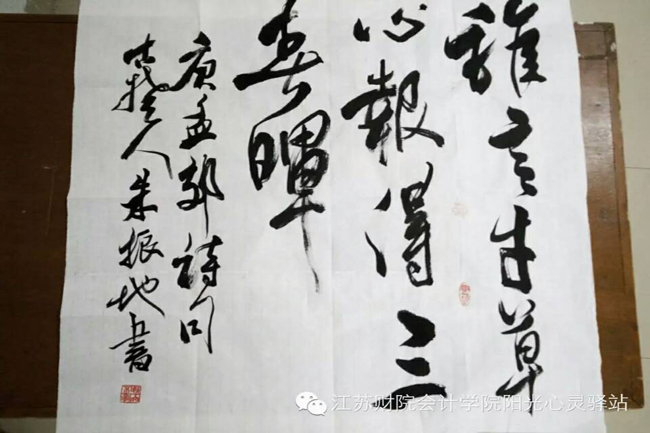 誰言寸草
心報得三
春暉
唐孟郊詩句
朱振地書
江苏财院会计学院阳光心灵驿站